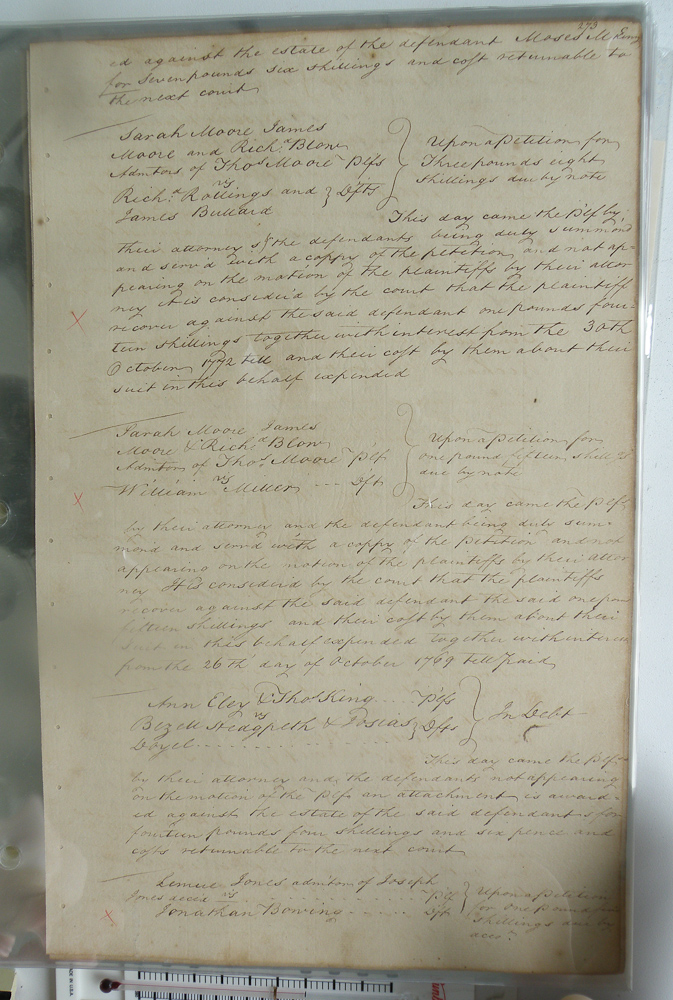 273
ed against the estate of the defendant Moses
for Seven pounds six shillings and cost returnable to
the next court
Sarah Moore James
Moore and Richd Blow
Admtors of Thos Moore Plfs
vs
Richd Rollings and } Dfts
James Bullard
Upon a Petition for
Three pounds eight
shillings due by note
This day came the Plf by
their attorney & the defendants being duly summond
and serv'd with a coppy of the petition and not ap=
pearing on the motion of the plaintiffs by their attor
ney it is consider'd by the court that the plaintiff
recover against the said defendant one pounds four=
teen shillings together with interest from the 30th
October 1772 till and their cost by them about their
suit in this behalf expended
Sarah Moore James
Moore & Richd Blow
Admtors of Thos Moore Plfs
vs
William Miller --- Dft
Upon a Petition for
one pound fifteen shill's
due by note
This day came the Plfs
by their attorney and the defendant being duly sum=
mond and serv'd with a coppy of the petition and not
appearing on the motion of the plaintiffs by their attor
ney It is consider'd by the court that the plaintiffs
recover against the said defendant the said one
fifteen shillings and their cost by them about their
suit in this behalf expended together with
from the 26th day of October 1769 till paid
Ann Eley & Thos King .... Plfs
vs
Hedgpeth & Josias } Dfts
Doyel
In Debt
This day came the Plfs
by their attorney and the defendants not appearing
on the motion of the Plfs an attachment is award=
ed against the estate of the said defendants for
fourteen pounds four shillings and six pence and
costs returnable to the next court
Lemuel Jones admtor of Joseph
Jones decd .... Plf
vs
Jonathan Bowing ..... Dft
Upon a Petition
for one pound
shillings due by